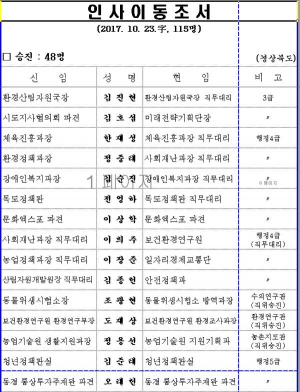 인사이동조서
(2017. 10. 23.字, 115명)
□ 승진 : 48명 (경상북도)
신 임 성 명 현 임 비 고
환경산림자원국장 김진현 환경산림자원국장 직무대리 3급
시도지사협의회 파견 김호섭 미래전략기획단장 〃
체육진흥과장 한재성 체육진흥과장 직무대리 행정4급
환경정책과장 정중태 사회재난과장 직무대리 〃
장애인복지과장 장애인복지과장 직무대리 〃
1 페이지
독도정책관 전영하 독도정책관 직무대리 〃
문화엑스포 파견 이상학 문화엑스포 파견 〃
사회재난과장 직무대리 이의주 보건환경연구원 행정4급
(직무대리)
농업정책과장 직무대리 이장준 일자리경제교통단 〃
산림자원개발원장 직무대리 김종헌 안전정책과 〃
동물위생시험소장 조광현 동물위생시험소 방역과장 수의연구관
(직위승진)
보건환경연구원 환경연구부장 도재상 보건환경연구원 환경조사과장 환경연구관
(직위승진)
농업기술원 생활지원과장 정용선 농업기술원 지원기획과 농촌지도관
(직위승진)
청년정책관실 김준태 청년정책관실 행정5급
동경 통상투자주재관 파견 오태헌 동경 통상투자주재관 파견 〃